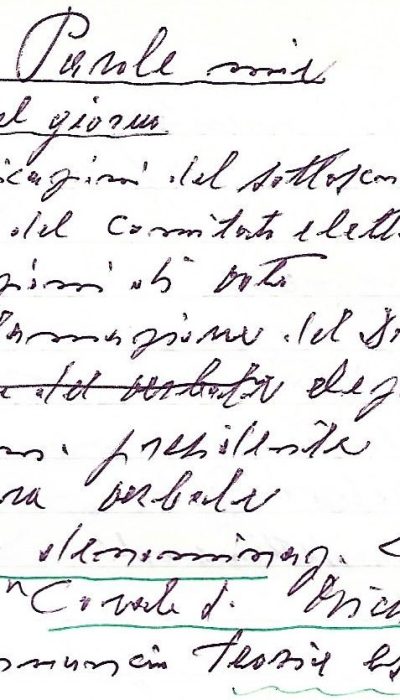 Parole mie
el giorno
icazioni del sottoscr
del Comitato elett
zioni di voto
lamazione del S
del verbale eleg
presidente
ra verbale
denominaz.
Corale d.
nuncia Teoria es